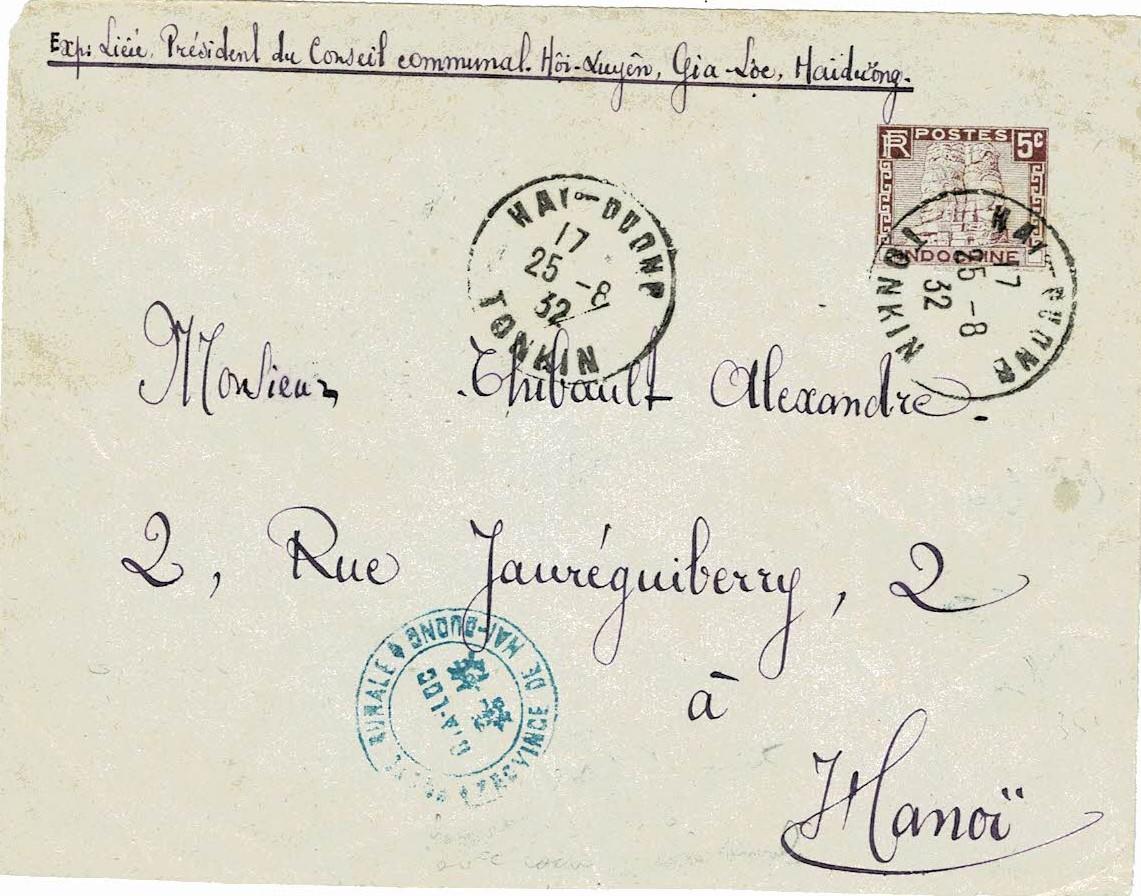 Exp: Liêu, Président du Conseil communal. Hôi-Xuyên, Gia-Lôc, Haidương.
RF POSTES 5c
INDOCHINE
HAI-DUONG
17
25 -8
32
TONKIN
HAI-DUONG
17
25 -8
32
TONKIN
Monsieur Thibault Alexandre.
2, Rue Jauréguiberry, 2
à
Hanoï
POSTE RURALE
PROVINCE DE HAI-DUONG
GIA-LOC